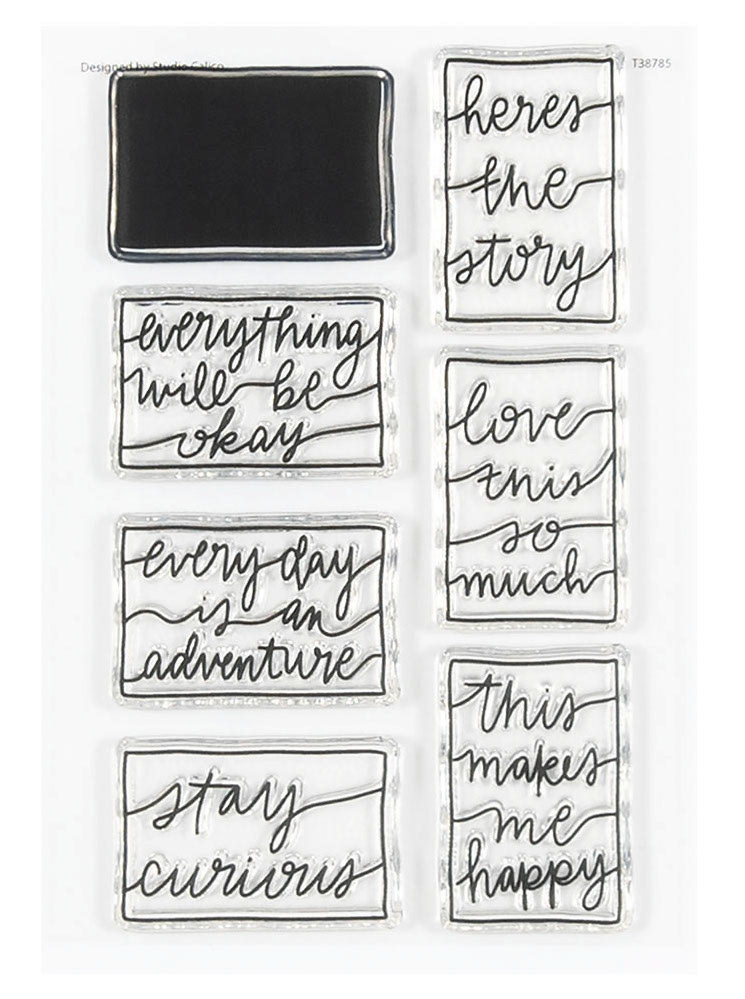 Designed by Studio Calico
T38785
everything
will be
okay
every day
is an
adventure
stay
curious
heres
the
story
love
this
so
much
this
makes
me
happy